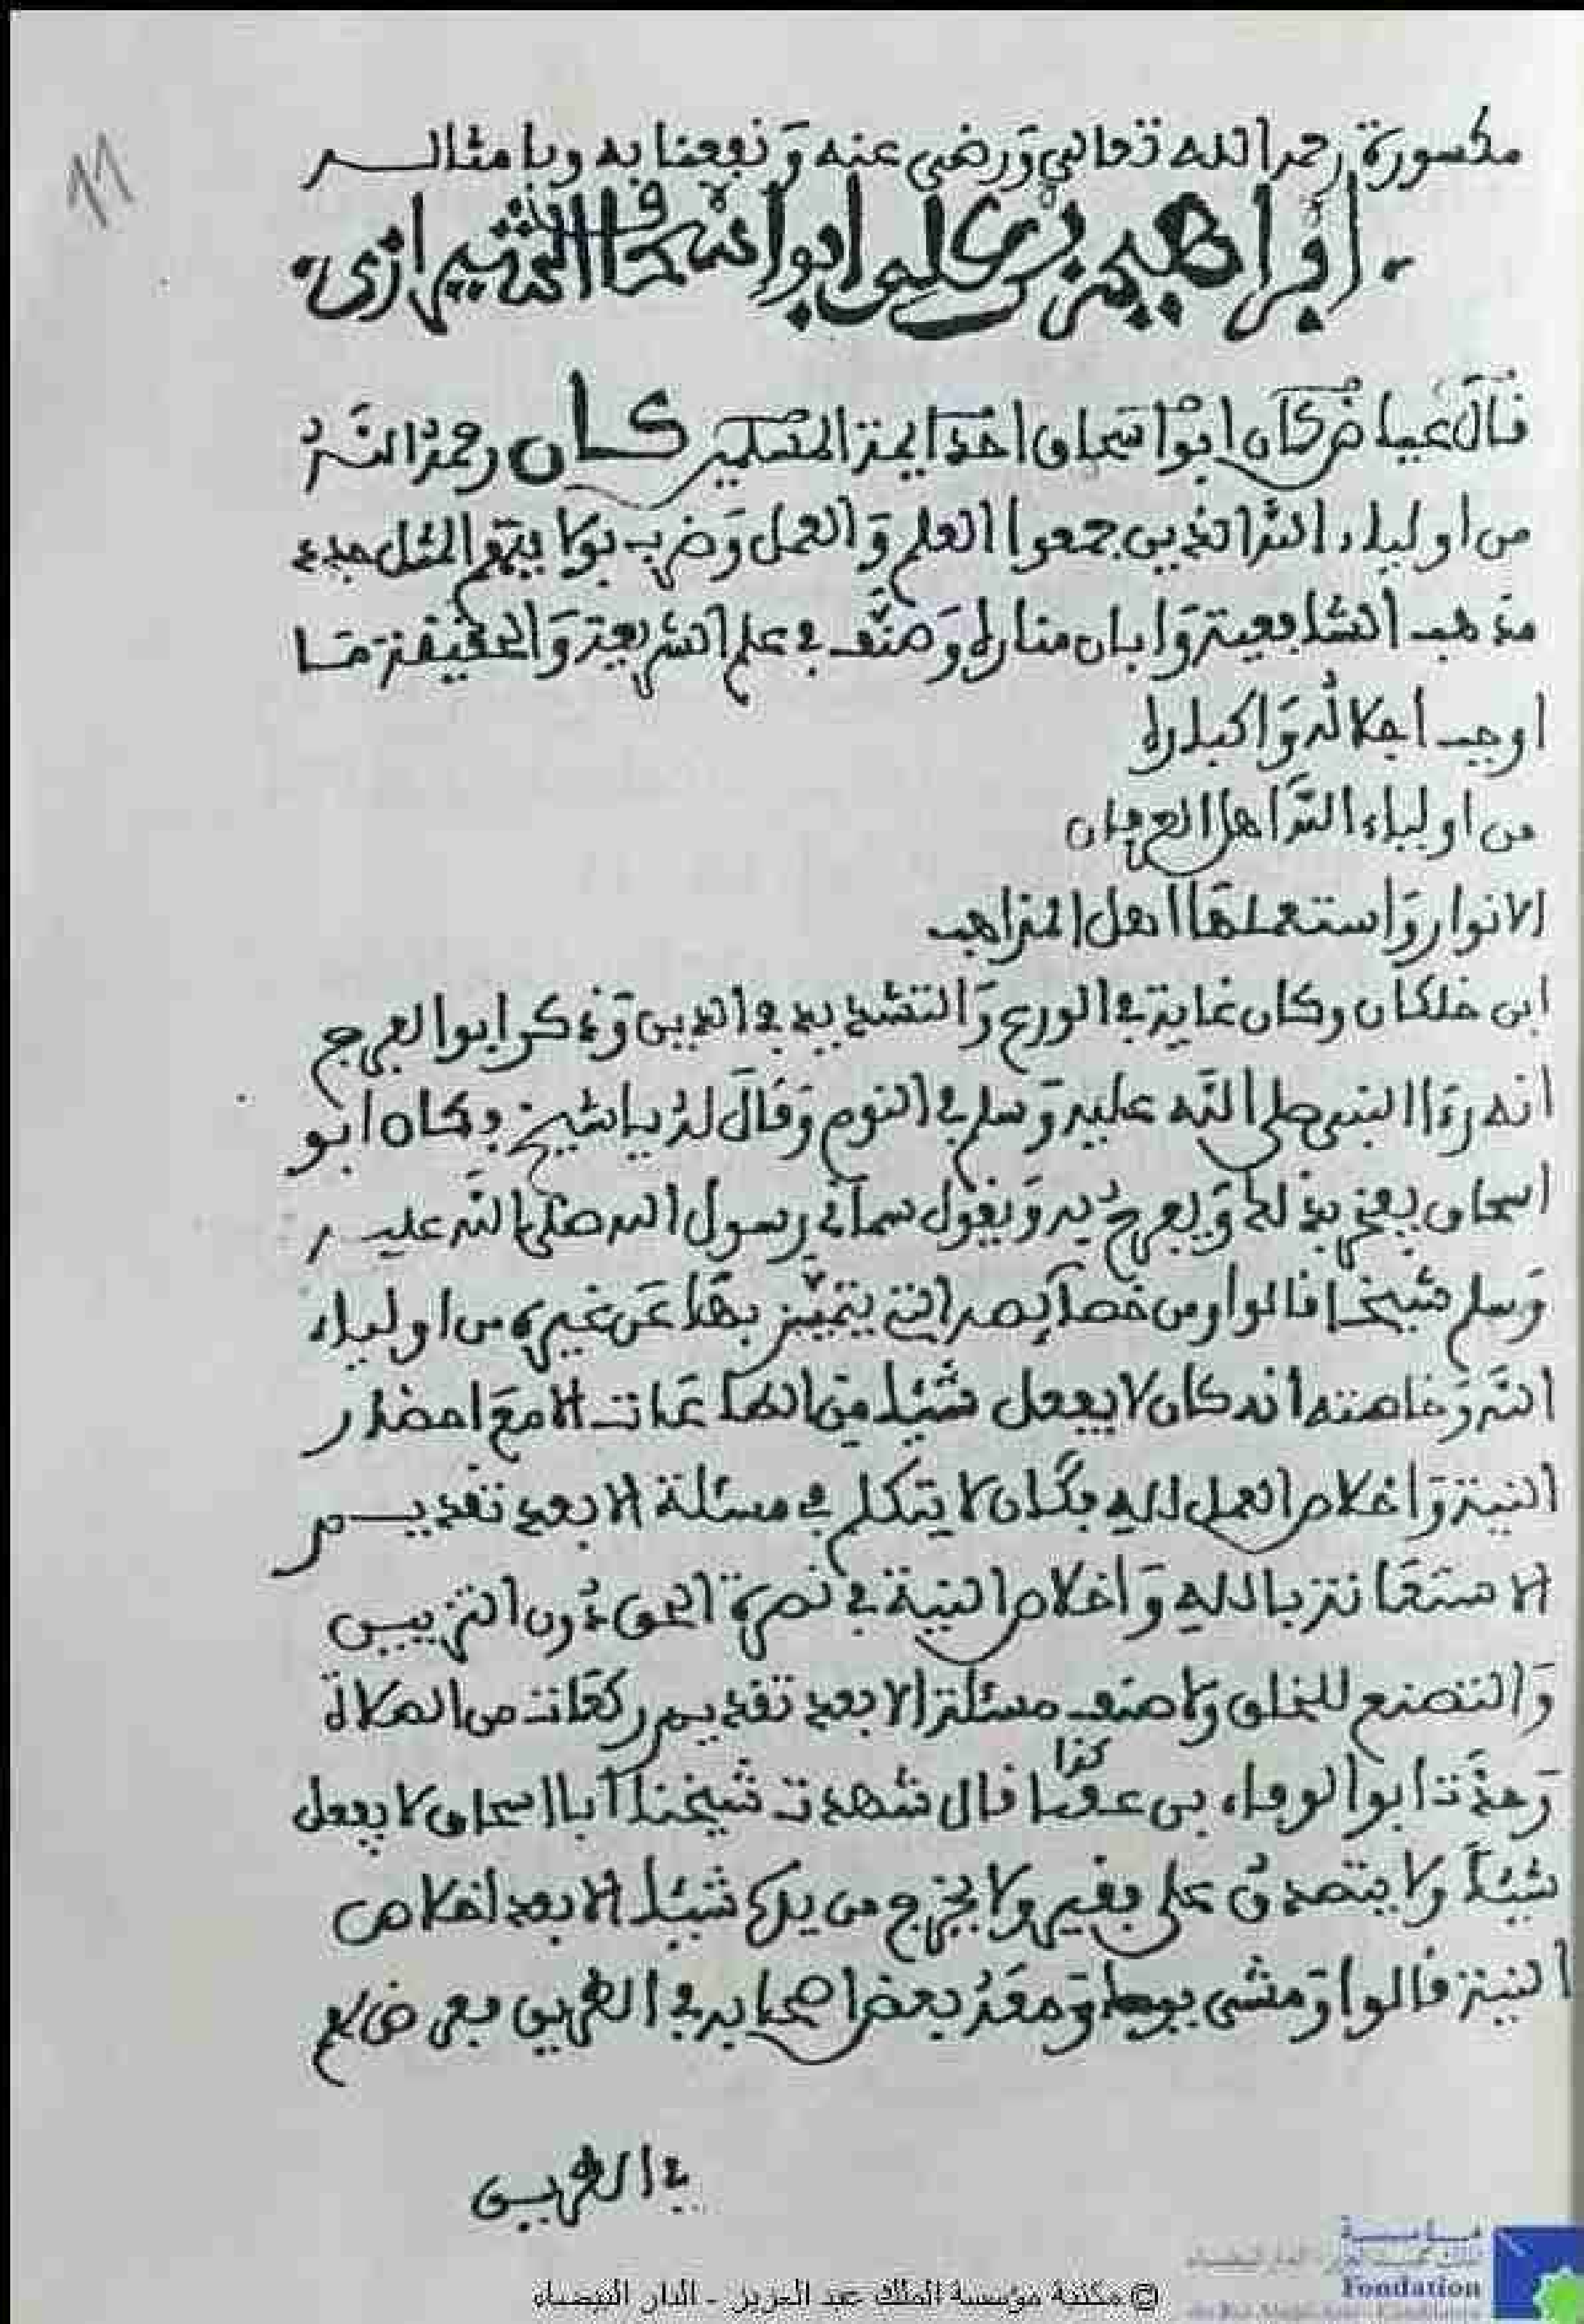 11
مكسورة رحمه الله تعالى ورضي عنه ونفعنا به وبامثاله
ابراهيم بن علي ابو اسحاق الشيرازي
قال عياض كان ابو اسحاق احد ايمة المسلمين كان رحمه الله
من اولياء الله الذين جمعوا العلم والعمل وضرب بوكايتهم المثل جدد
مذهب الشافعية وابان مناره وصنف في علم الشريعة والحقيقة ما
اوجب اجلاله واكباره
من اولياء الله اهل العرفان
الانوار واستعملها اهل المذاهب
ابن خلكان وكان غاية في الورع والتشديد في الدين وذكر ابو الفرج
انه رءا النبي صلى الله عليه وسلم في النوم وقال له يا شيخ وكان ابو
اسحاق يفخر بذلك ويفرح به ويقول سماني رسول الله صلى الله عليه
وسلم شيخا قالوا ومن خصايصه التي يتميز بها عن غيره من اولياء
الله وخاصته انه كان لا يفعل شيئا من الطاعات الا مع احضار
النية واخلاص العمل لله فكان لا يتكلم في مسئلة الا بعد تقديم
الاستعانة بالله واخلاص النية في نصرة الحق دون التزيين
والتصنع للخلق ولا صنف مسئلة الا بعد تقديم ركعات من الصلاة
كذا
وحدث ابو الوفاء بن عقيا قال شهدت شيخنا ابا اسحاق لا يفعل
شيئا ولا يتصدق على فقير ولا يخرج من يده شيئا الا بعد اخلاص
النية قالوا ومشى يوما ومعه بعض اصحابه في الطريق فعرض لهم
في الطريق
مؤسسة
Fondation
© مكتبة مؤسسة الملك عبد العزيز - الدار البيضاء